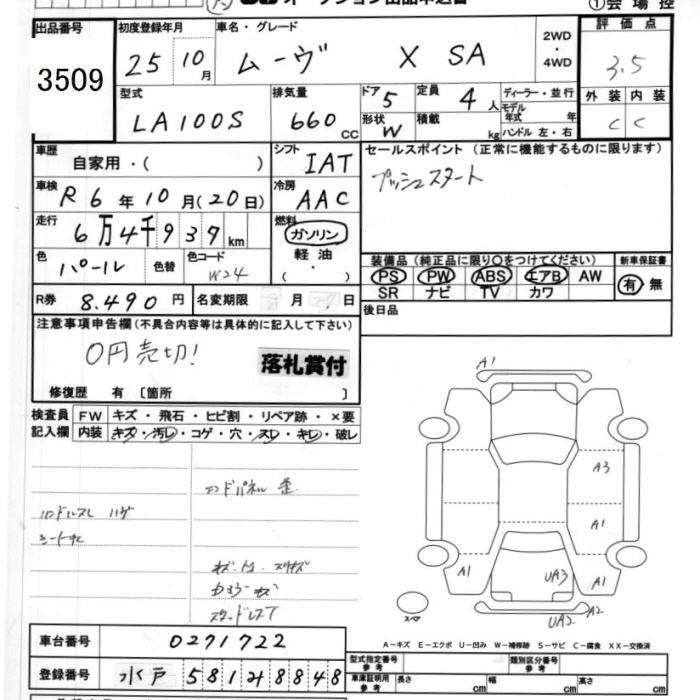 オークション出品申込書
①会場控
出品番号
3509
初度登録年月
25 10月
車名・グレード
ムーヴ X SA
2WD・4WD
評価点
3.5
外装 内装
C C
型式
LA100S
排気量
660 CC
ドア 5
形状 W
定員 4 人
積載 kg
ディーラー・並行
モデル年式 年
ハンドル 左・右
車歴
自家用・( )
シフト
IAT
セールスポイント (正常に機能するものに限ります)
プッシュスタート
車検
R 6年10月(20日)
冷房
AAC
走行
6万4千937km
燃料
ガソリン
軽油・
( )
色
パール
色替
色コード
W24
装備品 (純正品に限り○をつけてください)
PS PW ABS エアB AW
SR ナビ TV カワ
新車保証書
有 無
R券 8.490円
名変期限 月 日
後日品
注意事項申告欄 (不具合内容等は具体的に記入して下さい)
0円売切!
落札賞付
修復歴 有 〔箇所 〕
検査員記入欄
FW キズ・飛石・ヒビ割・リペア跡・×要
内装 キズ・汚レ・コゲ・穴・スレ・キレ・破レ
ハンドルスレ ハゲ
A1
A3
A1
A1
A1
UA3
UA2
A2
スペア
A-キズ E-エクボ U-凹み W-補修跡 S-サビ C-腐食 XX-交換済
車台番号
0271722
登録番号
水戸 581 み 8848
型式指定番号 参考
類別区分番号 参考
車庫証明用 参考
長さ cm
幅 cm
高さ cm